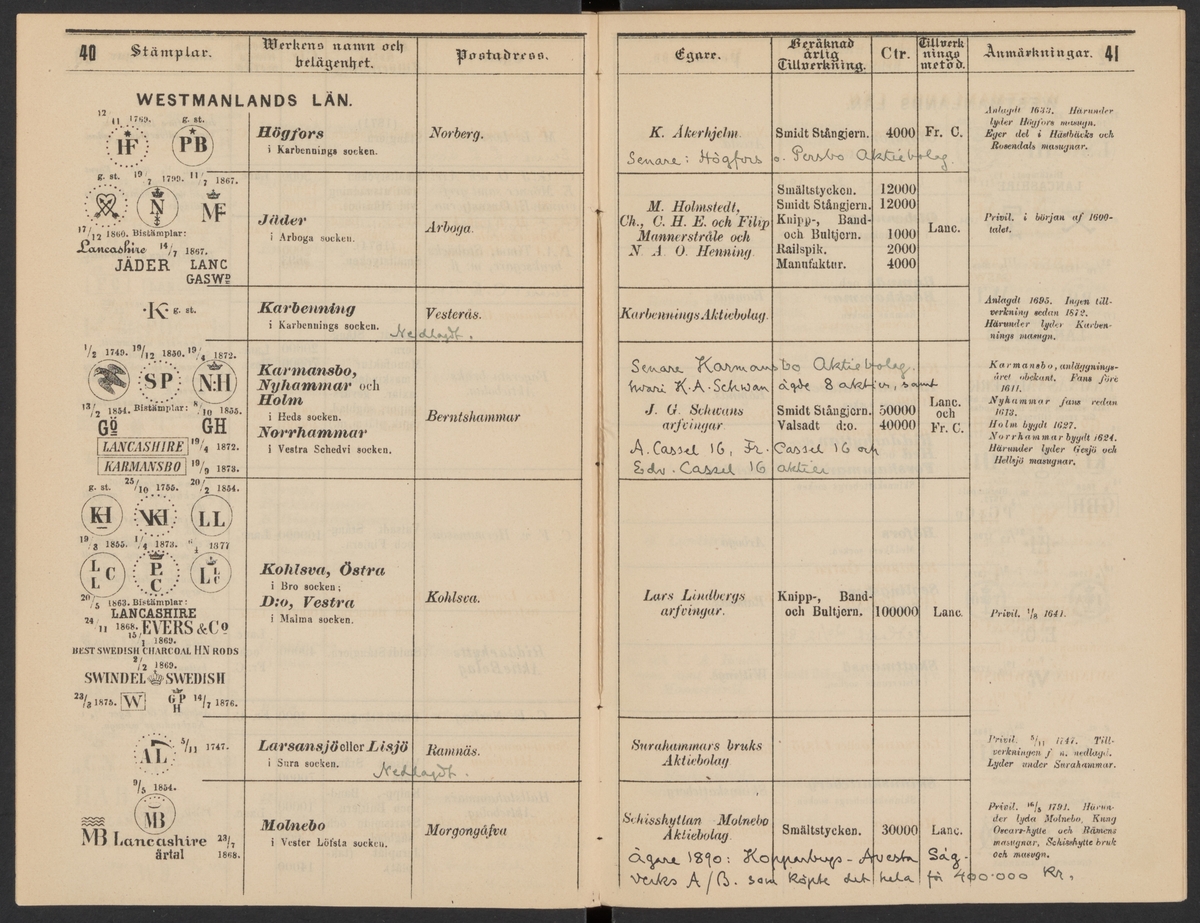 40 Stämplar. Werkens namn och belägenhet. Postadress.
WESTMANLANDS LÄN.
12/11 1769. g. st.
HF PB
Högfors
i Karbennings socken.
Norberg.
g. st. 19/7 1799. 11/7 1867.
N MF
17/12 1860. Bistämplar:
Lancashire 14/7 1867.
JÄDER LANC
GASWD
Jäder
i Arboga socken.
Arboga.
·K· g. st.
Karbenning
i Karbennings socken.
Nedlagdt.
Vesterås.
1/2 1749. 19/12 1850. 19/4 1872.
SP N:H
13/2 1854. Bistämplar: 8/10 1855.
GÖ GH
LANCASHIRE 19/4 1872.
KARMANSBO 19/9 1873.
Karmansbo,
Nyhammar och
Holm
i Heds socken.
Norrhammar
i Vestra Schedvi socken.
Berntshammar
g. st. 25/10 1755. 20/2 1854.
KH VKH LL
19/3 1855. 1/4 1873. 1877
L L C P. C L L C
20/5 1863. Bistämplar:
LANCASHIRE
24/11 1868. EVERS & Co
15/1 1869.
BEST SWEDISH CHARCOAL HN RODS
2/2 1869.
SWINDEL SWEDISH
23/3 1875. W G P H 14/7 1876.
Kohlsva, Östra
i Bro socken;
D:o, Vestra
i Malma socken.
Kohlsva.
AL 5/11 1747.
Larsansjö eller Lisjö
i Sura socken.
Nedlagdt.
Ramnäs.
9/5 1854.
MB
MB Lancashire 23/7 1868.
årtal
Molnebo
i Vester Löfsta socken.
Morgongåfva
Egare. Beräknad årlig Tillverkning. Ctr. Tillverknings metod. Anmärkningar. 41
K. Åkerhjelm.
Smidt Stångjern. 4000 Fr. C.
Senare: Högfors o. Persbo Aktiebolag.
Anlagdt 1633. Härunder
lyder Högfors masugn.
Eger del i Hästbäcks och
Rosendals masugnar.
M. Holmstedt,
Ch., C. H. E. och Filip
Mannerstråle och
N. A. O. Henning.
Smältstycken. 12000
Smidt Stångjern. 12000
Knipp-, Band-
och Bultjern. 1000
Railspik. 2000
Manufaktur. 4000
Lanc.
Privil. i början af 1600-
talet.
Karbennings Aktiebolag.
Anlagdt 1695. Ingen till-
verkning sedan 1872.
Härunder lyder Karben-
nings masugn.
Senare Karmansbo Aktiebolag.
hvari K. A. Schwan ägde 8 aktier, samt
J. G. Schwans
arfvingar.
Smidt Stångjern. 50000
Valsadt d:o. 40000
Lanc.
och
Fr. C.
A. Cassel 16, Fr. Cassel 16 och
Edv. Cassel 16 aktier
Karmansbo, anläggnings-
året obekant. Fans före
1611.
Nyhammar fans redan
1613.
Holm bygdt 1627.
Norrhammar bygdt 1624.
Härunder lyder Gesjö och
Hellsjö masugnar.
Lars Lindbergs
arfvingar.
Knipp-, Band-
och Bultjern. 100000 Lanc.
Privil. 1/8 1641.
Surahammars bruks
Aktiebolag
Privil. 5/11 1747. Till-
verkningen f. n. nedlagd.
Lyder under Surahammar.
Schisshyttan Molnebo
Aktiebolag.
Smältstycken. 30000 Lanc.
ägare 1890: Kopparbergs-Avesta Såg-
verks A/B. som köpte det hela för 400.000 kr.
Privil. 16/5 1791. Härun-
der lyda Molnebo, Kung
Oscars-hytte och Rämens
masugnar, Schisshytte bruk
och masugn.